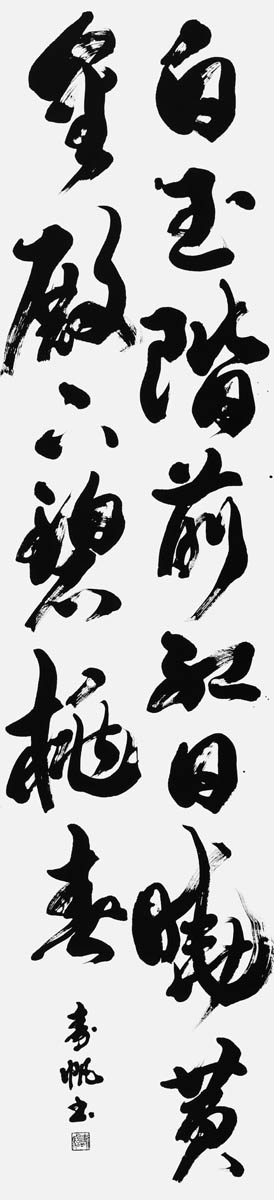 白玉階前紅日曉黄
金殿下碧桃春
寿帆书